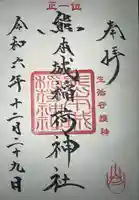 正一位
奉拝
生活守護神
熊本城稲荷神社
令和六年十二月二十九日